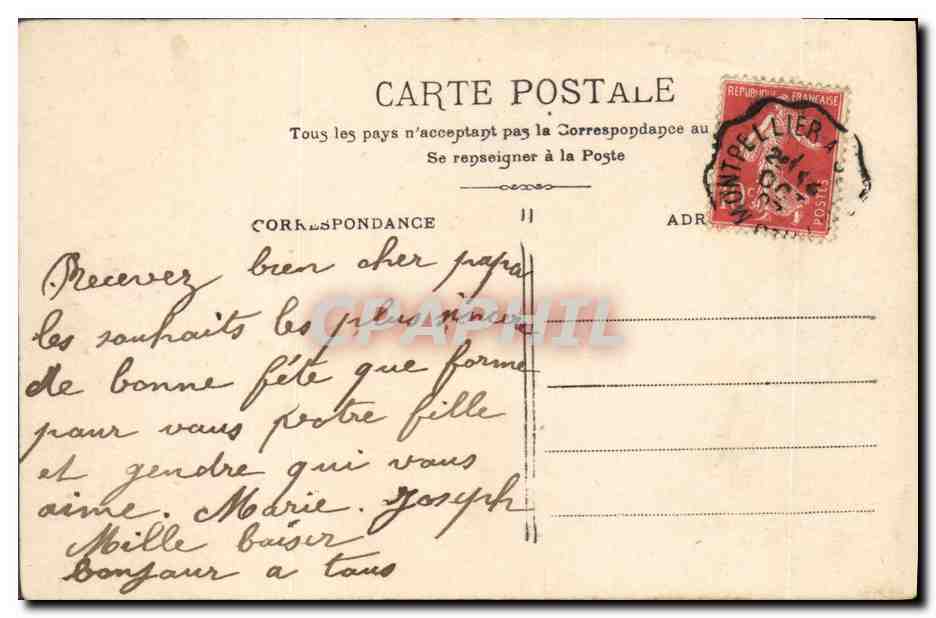 CARTE POSTALE
Tous les pays n'acceptent pas la Correspondance au
Se renseigner à la Poste
REPUBLIQUE FRANÇAISE
POSTES
MONTPELLIER A
CORRESPONDANCE
ADR
CPAPHIL
Recevez bien cher papa
les souhaits les plus sincer
de bonne fête que forme
pour vous votre fille
et gendre qui vous
aime. Marie. Joseph
Mille baiser
bonjour a tous